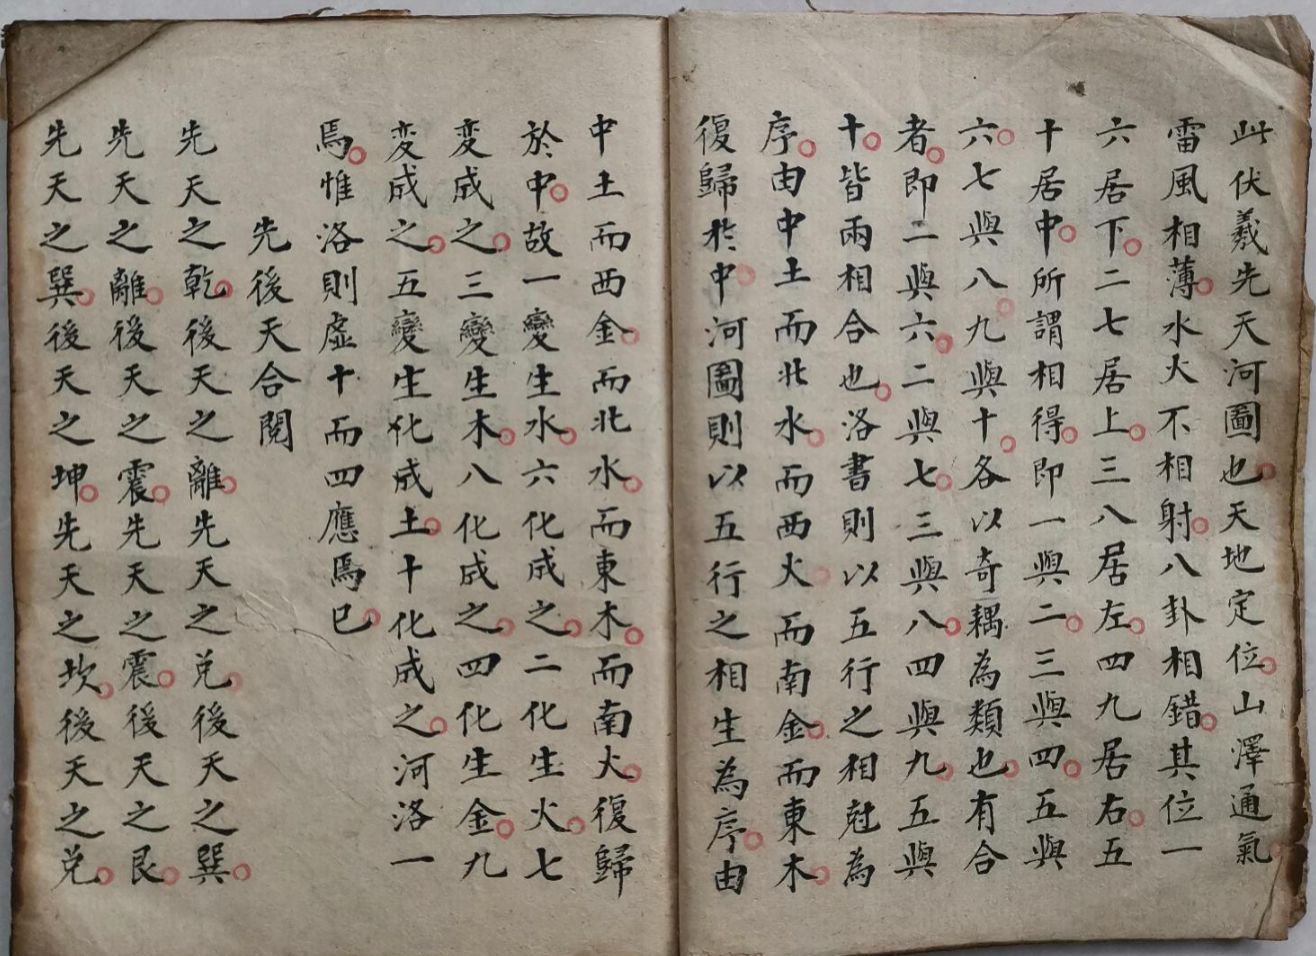 此伏羲先天河圖也天地定位山澤通氣
雷風相薄水火不相射八卦相錯其位一
六居下二七居上三八居左四九居右五
十居中所謂相得即一與二三與四五與
六七與八九與十各以奇耦為類也有合
者即二與六二與七三與八四與九五與
十皆兩相合也洛書則以五行之相尅為
序由中土而北水而西火而南金而東木
復歸於中河圖則以五行之相生為序由
中土而西金而北水而東木而南火復歸
於中故一變生水六化成之二化生火七
変成之三變生木八化成之四化生金九
変成之五變生化成土十化成之河洛一
焉惟洛則虛十而四應焉已
先後天合閱
先天之乾後天之離先天之兑後天之巽
先天之離後天之震先天之震後天之艮
先天之巽後天之坤先天之坎後天之兑